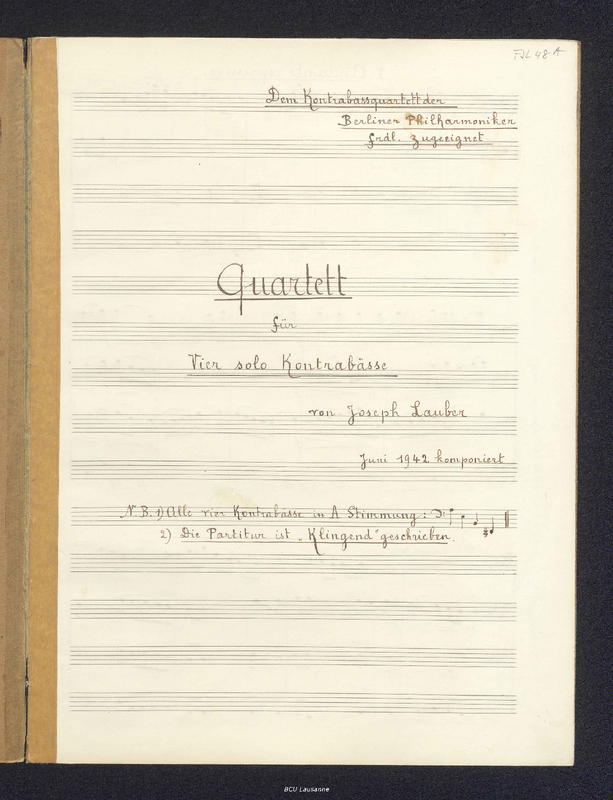 FJL 48 A
Dem Kontrabassquartett der
Berliner Philharmoniker
frdl. zugeeignet
Quartett
für
Vier solo Kontrabässe
von Joseph Lauber
Juni 1942 komponiert
N.B. 1) Alle vier Kontrabässe in A Stimmung:
2) Die Partitur ist „Klingend" geschrieben.
BCU Lausanne